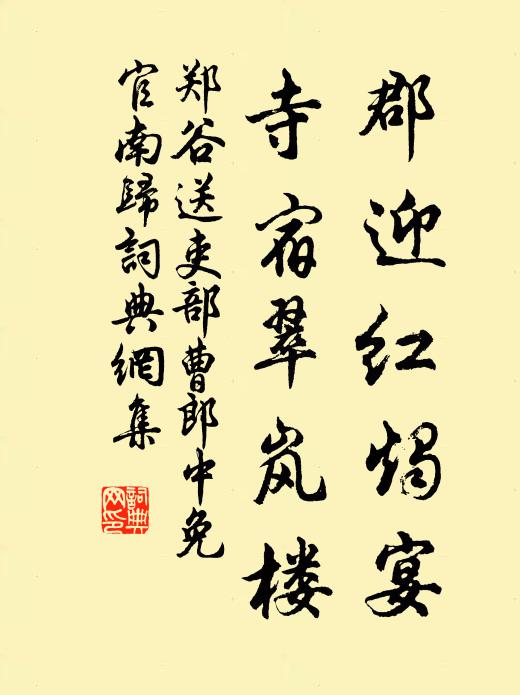 郡迎红烛宴
寺宿翠岚楼
郑谷送吏部曹郎中免
官南歸詞典網集
詞典网印